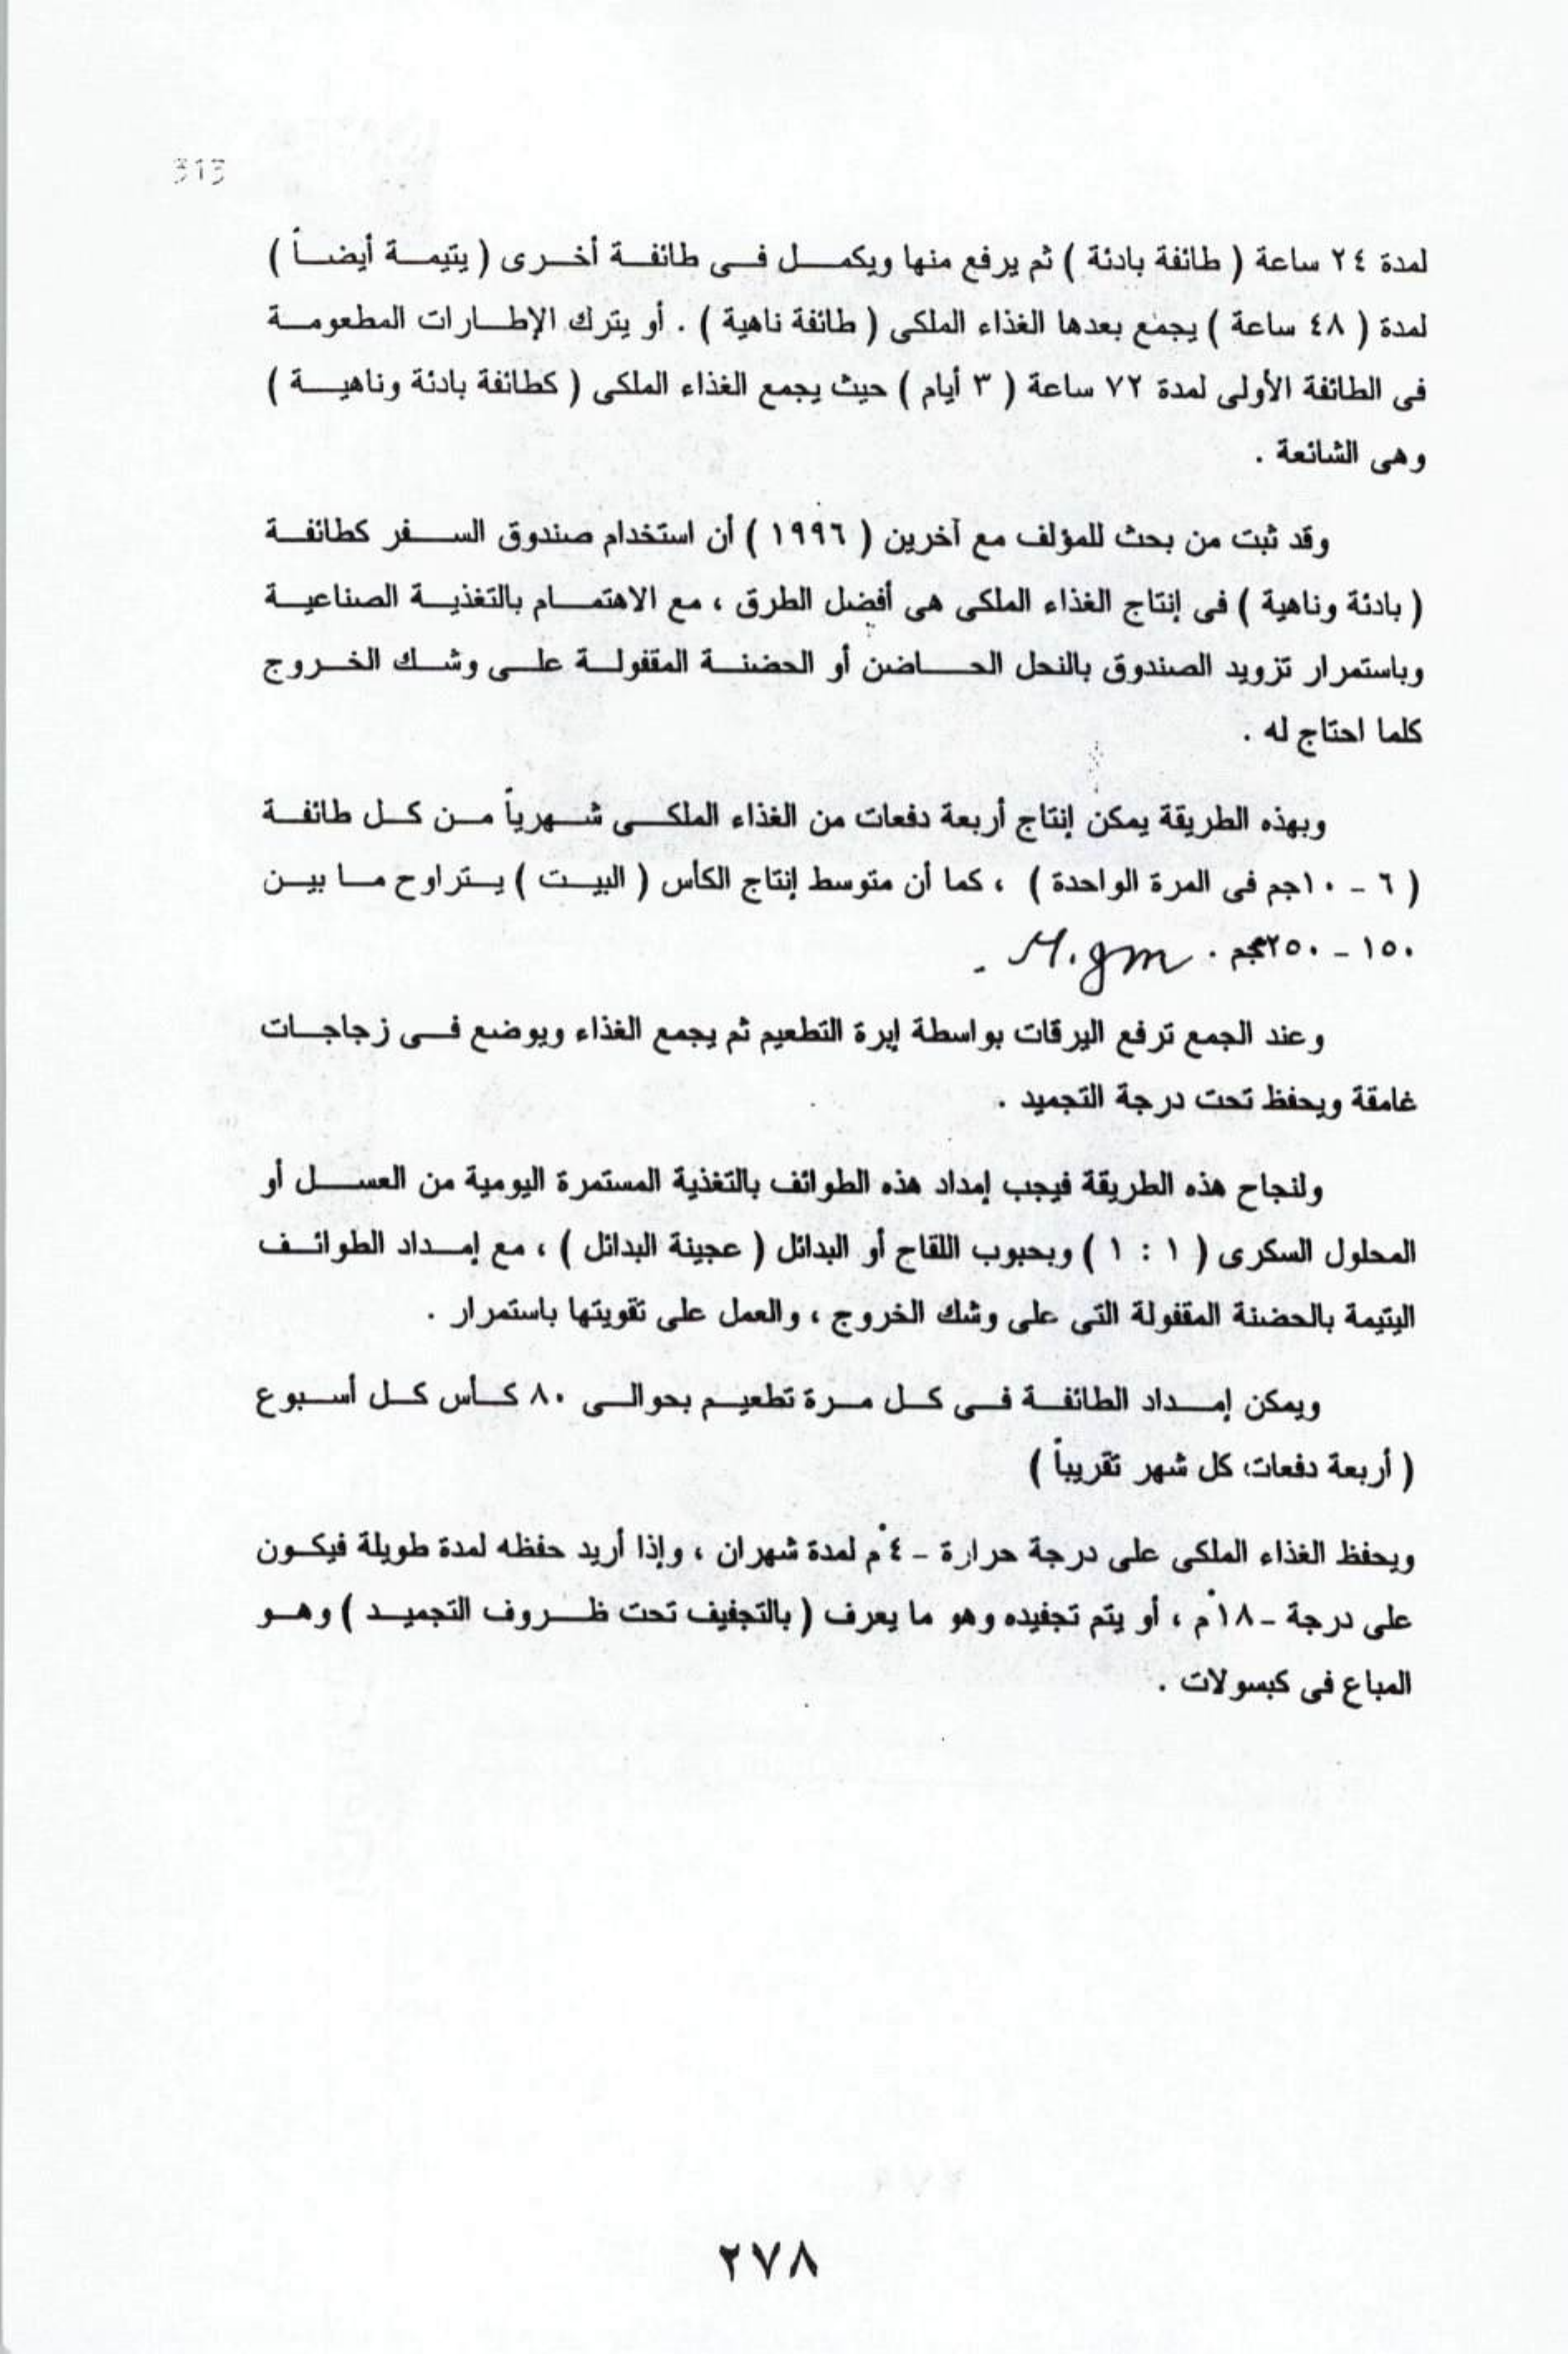 313
لمدة ٢٤ ساعة ( طائفة بادئة ) ثم يرفع منها ويكمل فى طائفة أخرى ( يتيمة أيضاً )
لمدة ( ٤٨ ساعة ) يجمع بعدها الغذاء الملكى ( طائفة ناهية ) . أو يترك الإطارات المطعومة
فى الطائفة الأولى لمدة ٧٢ ساعة ( ٣ أيام ) حيث يجمع الغذاء الملكى ( كطائفة بادئة وناهية )
وهى الشائعة .
وقد ثبت من بحث للمؤلف مع آخرين ( ١٩٩٦ ) أن استخدام صندوق السفر كطائفة
( بادئة وناهية ) فى إنتاج الغذاء الملكى هى أفضل الطرق ، مع الاهتمام بالتغذية الصناعية
وباستمرار تزويد الصندوق بالنحل الحاضن أو الحضنة المقفولة على وشك الخروج
كلما احتاج له .
وبهذه الطريقة يمكن إنتاج أربعة دفعات من الغذاء الملكى شهرياً من كل طائفة
( ٦ - ١٠جم فى المرة الواحدة ) ، كما أن متوسط إنتاج الكأس ( البيت ) يتراوح ما بين
١٥٠ - ٢٥٠مجم . M.gm .
وعند الجمع ترفع اليرقات بواسطة إبرة التطعيم ثم يجمع الغذاء ويوضع فى زجاجات
غامقة ويحفظ تحت درجة التجميد .
ولنجاح هذه الطريقة فيجب إمداد هذه الطوائف بالتغذية المستمرة اليومية من العسل أو
المحلول السكرى ( ١ : ١ ) وبحبوب اللقاح أو البدائل ( عجينة البدائل ) ، مع إمداد الطوائف
اليتيمة بالحضنة المقفولة التى على وشك الخروج ، والعمل على تقويتها باستمرار .
ويمكن إمداد الطائفة فى كل مرة تطعيم بحوالى ٨٠ كأس كل أسبوع
( أربعة دفعات كل شهر تقريباً )
ويحفظ الغذاء الملكى على درجة حرارة - ٤°م لمدة شهران ، وإذا أريد حفظه لمدة طويلة فيكون
على درجة - ١٨°م ، أو يتم تجفيده وهو ما يعرف ( بالتجفيف تحت ظروف التجميد ) وهو
المباع فى كبسولات .
٢٧٨